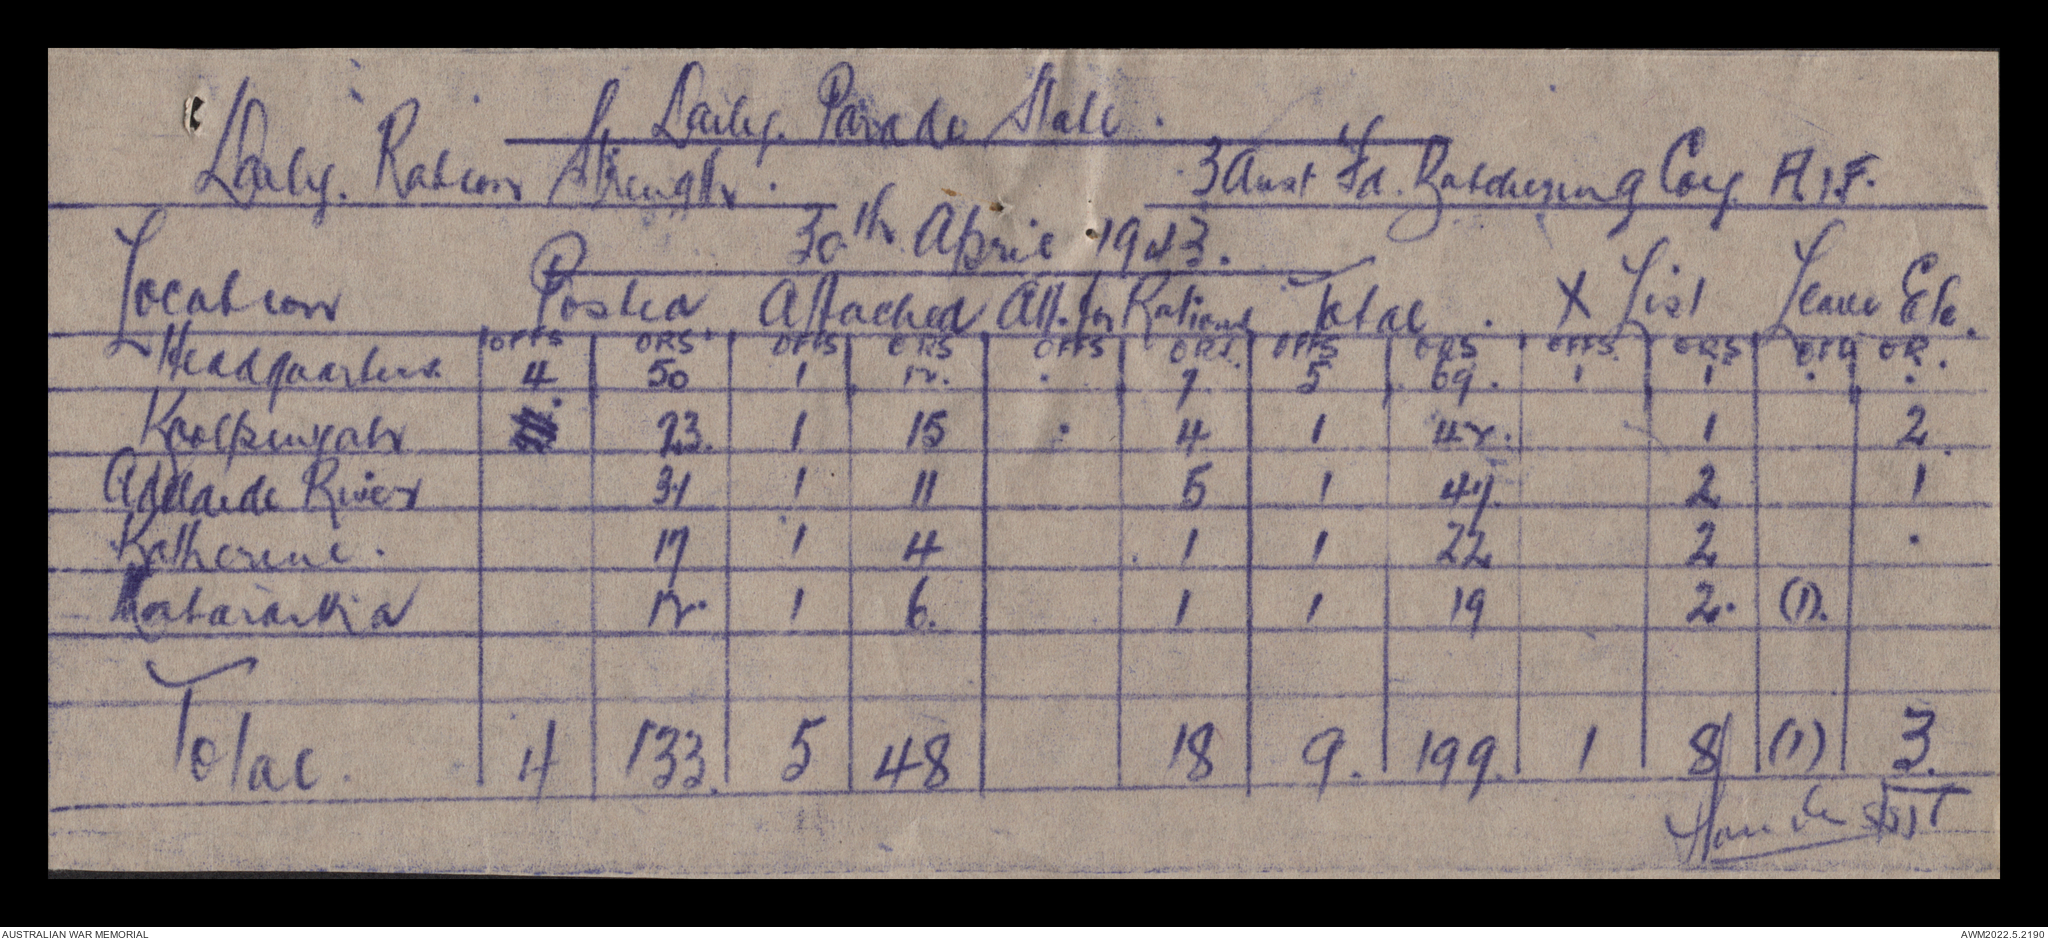 Daily Parade State.
& Daily Ration Strength. 3 Aust Fd. Butchering Coy. A.I.F.
30th April 1943.
Location Posted Attached Att. for Rations Total X List Leave Etc.
OFFS ORS OFFS ORS OFFS ORS OFFS ORS OFFS ORS OFF OR.
Headquarters 4 50 1 12 . 7 5 69. 1 1 . .
Koolpinyah 23. 1 15 . 4 1 42. 1 2
Adelaide River 31 1 11 5 1 47 2 1
Katherine. 17 1 4 1 1 22 2 .
Mataranka 12. 1 6. 1 1 19 2. (1).
Total. 4 133. 5 48 18 9. 199. 1 8 (1) 3.
S/SGT
AUSTRALIAN WAR MEMORIAL AWM2022.5.2190